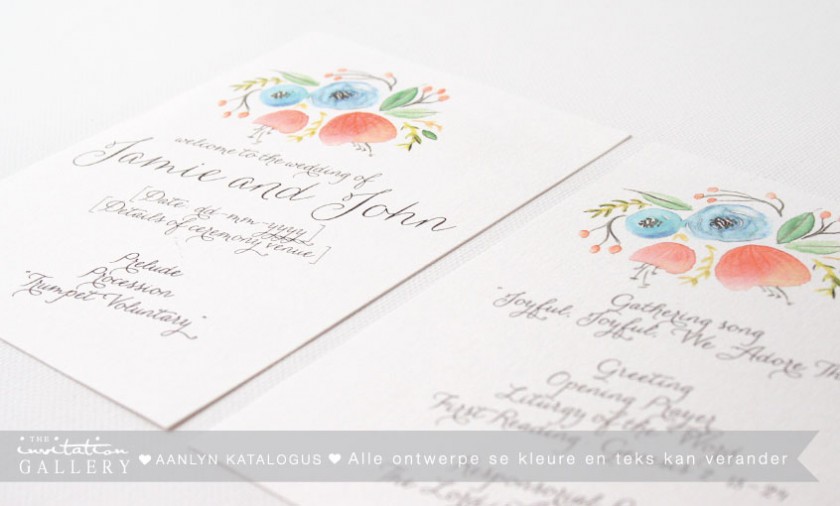 welcome to the wedding of
Jamie and John
[Date: dd-mm-yyyy]
[Details of ceremony venue]
Prelude
Procession
"Trumpet Voluntary"
Gathering song
"Joyful, Joyful, We Adore Th
Greeting
Opening Prayer
Liturgy of the Word
First Reading
2:18-24
Responsorial
The Lord
THE
invitation
GALLERY
AANLYN KATALOGUS
Alle ontwerpe se kleure en teks kan verander